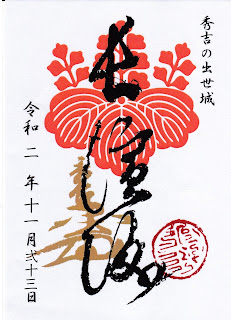 秀吉の出世城
長濱城
令和二年十一月弐十三日